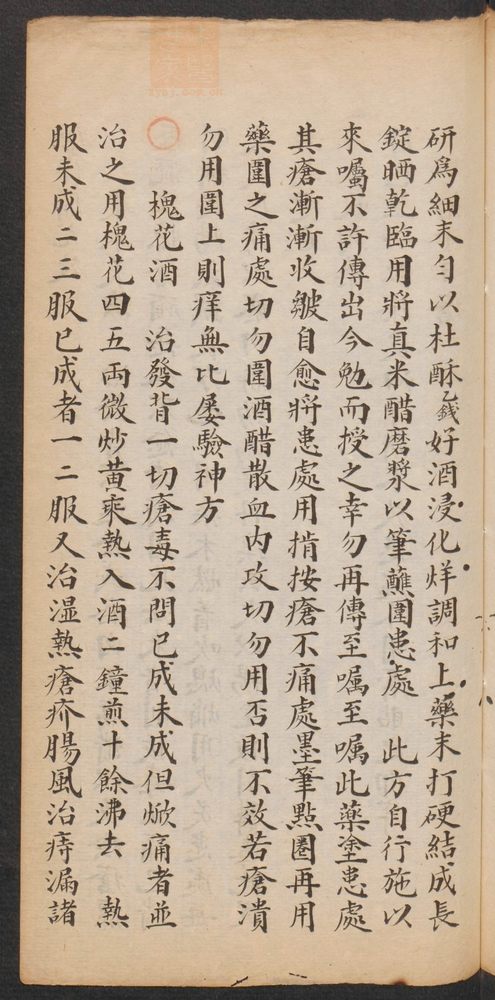 研爲細末勻以杜酥乙錢好酒浸化烊調和上藥末打硬結成長
錠晒乾臨用將真米醋磨漿以筆蘸圍患處 此方自行施以
來囑不許傳出今勉而授之幸勿再傳至嘱至嘱此藥塗患處
其瘡漸漸收皺自愈將患處用指按瘡不痛處墨筆點圈再用
藥圍之痛處切勿圍酒醋散血内攻切勿用否則不效若瘡潰
勿用圍上則痒無比屡驗神方
槐花酒 治發背一切瘡毒不問已成未成但焮痛者並
治之用槐花四五両微炒黄乘熱入酒二鐘煎十餘沸去 熱
服未成二三服已成者一二服又治湿熱瘡疥腸風治痔漏諸